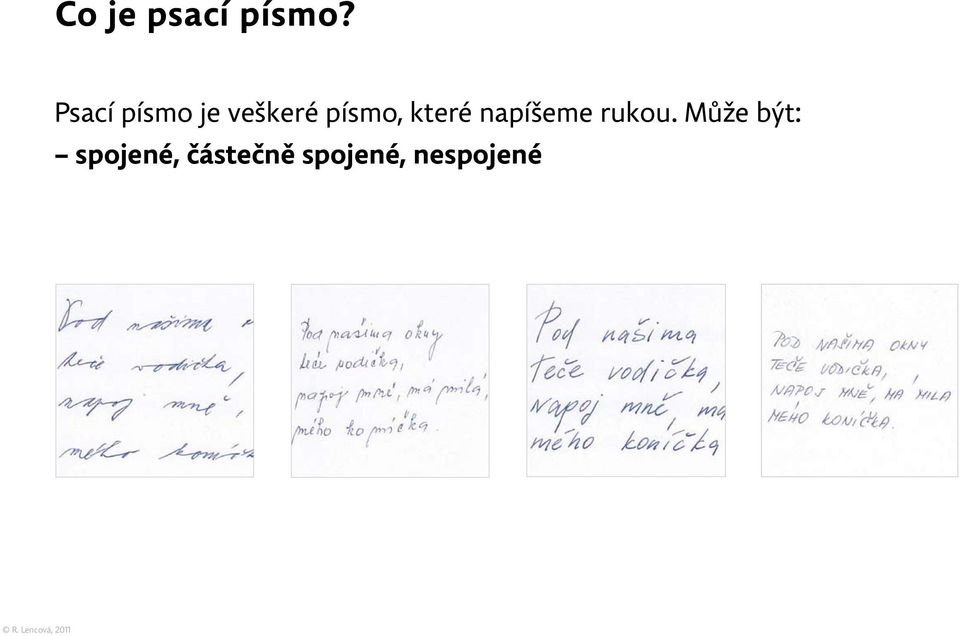 Co je psací písmo?
Psací písmo je veškeré písmo, které napíšeme rukou. Může být:
– spojené, částečně spojené, nespojené
Pod našima
teče vodička,
napoj mně,
mého
Pod našima okny
teče vodička,
napoj mně, má milá,
mého koníčka.
Pod našima
teče vodička,
napoj mně, má
mého koníčka
POD NAŠIMA OKNY
TEČE VODIČKA,
NAPOJ MNĚ, MA MILA
MÉHO KONÍČKA.
© R. Lencová, 2011